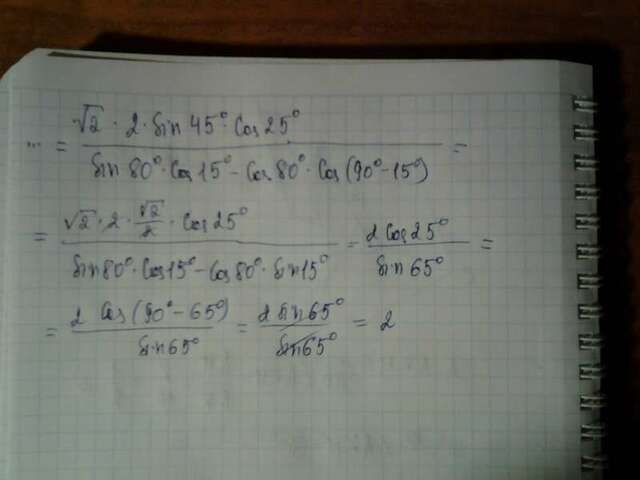 ... = √2 · 2 · sin 45° cos 25° / sin 80° · cos 15° − cos 80° · cos (90° − 15°) =
= √2 · 2 · √2/2 · cos 25° / sin 80° · cos 15° − cos 80° · sin 15° = 2 cos 25° / sin 65° =
= 2 cos (90° − 65°) / sin 65° = 2 sin 65° / sin 65° = 2